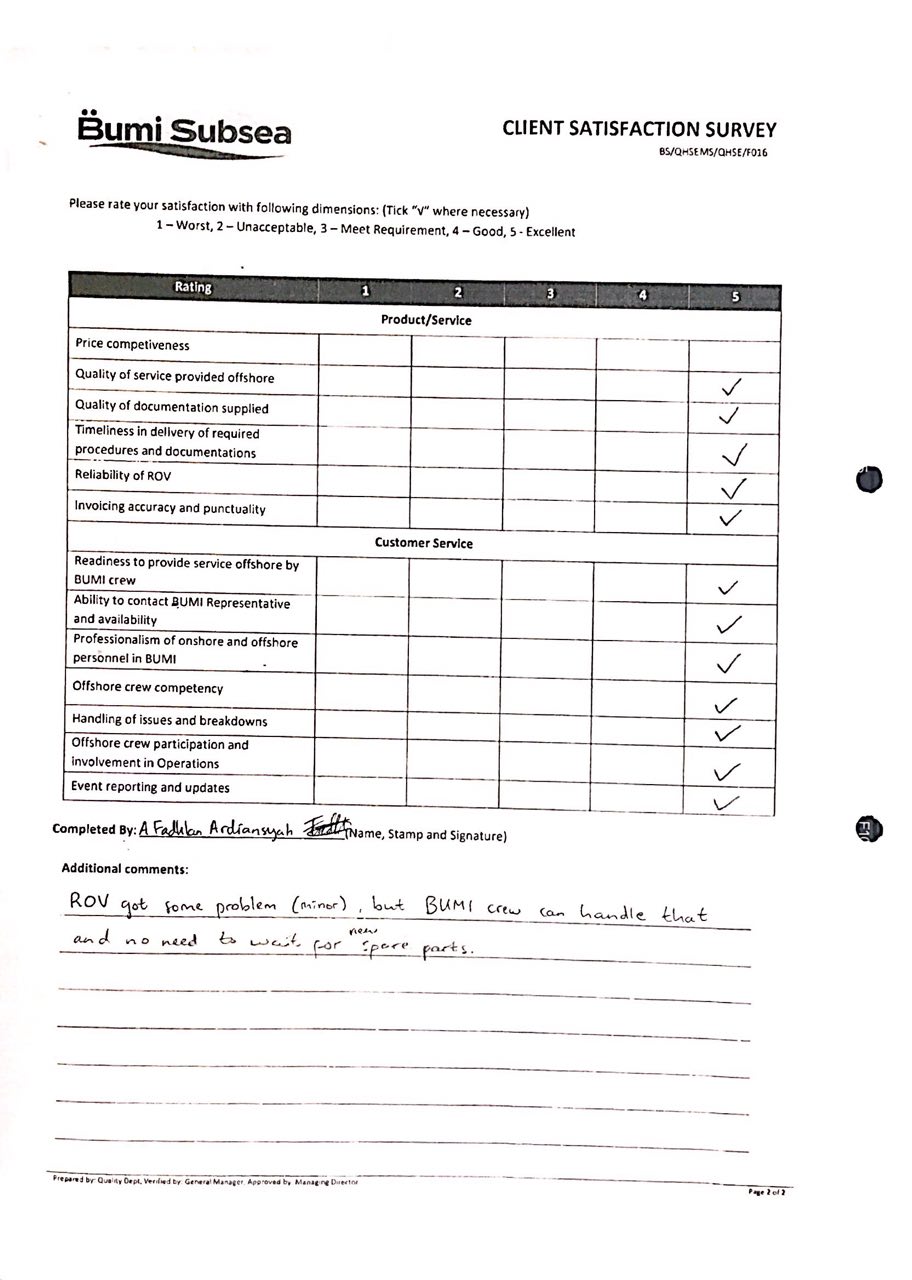 Bumi Subsea
CLIENT SATISFACTION SURVEY
BS/QHSEMS/QHSE/F016
Please rate your satisfaction with following dimensions: (Tick "√" where necessary)
1 – Worst, 2 – Unacceptable, 3 – Meet Requirement, 4 – Good, 5 - Excellent
Rating 1 2 3 4 5
Product/Service
Price competiveness
Quality of service provided offshore ✓
Quality of documentation supplied ✓
Timeliness in delivery of required
procedures and documentations ✓
Reliability of ROV ✓
Invoicing accuracy and punctuality ✓
Customer Service
Readiness to provide service offshore by
BUMI crew ✓
Ability to contact BUMI Representative
and availability ✓
Professionalism of onshore and offshore
personnel in BUMI ✓
Offshore crew competency ✓
Handling of issues and breakdowns ✓
Offshore crew participation and
involvement in Operations ✓
Event reporting and updates ✓
Completed By: A Fadhlan Ardiansyah (Name, Stamp and Signature)
Additional comments:
ROV got some problem (minor), but BUMI crew can handle that
and no need to wait for new spare parts.
Prepared by: Quality Dept, Verified by: General Manager, Approved by Managing Director
Page 2 of 2